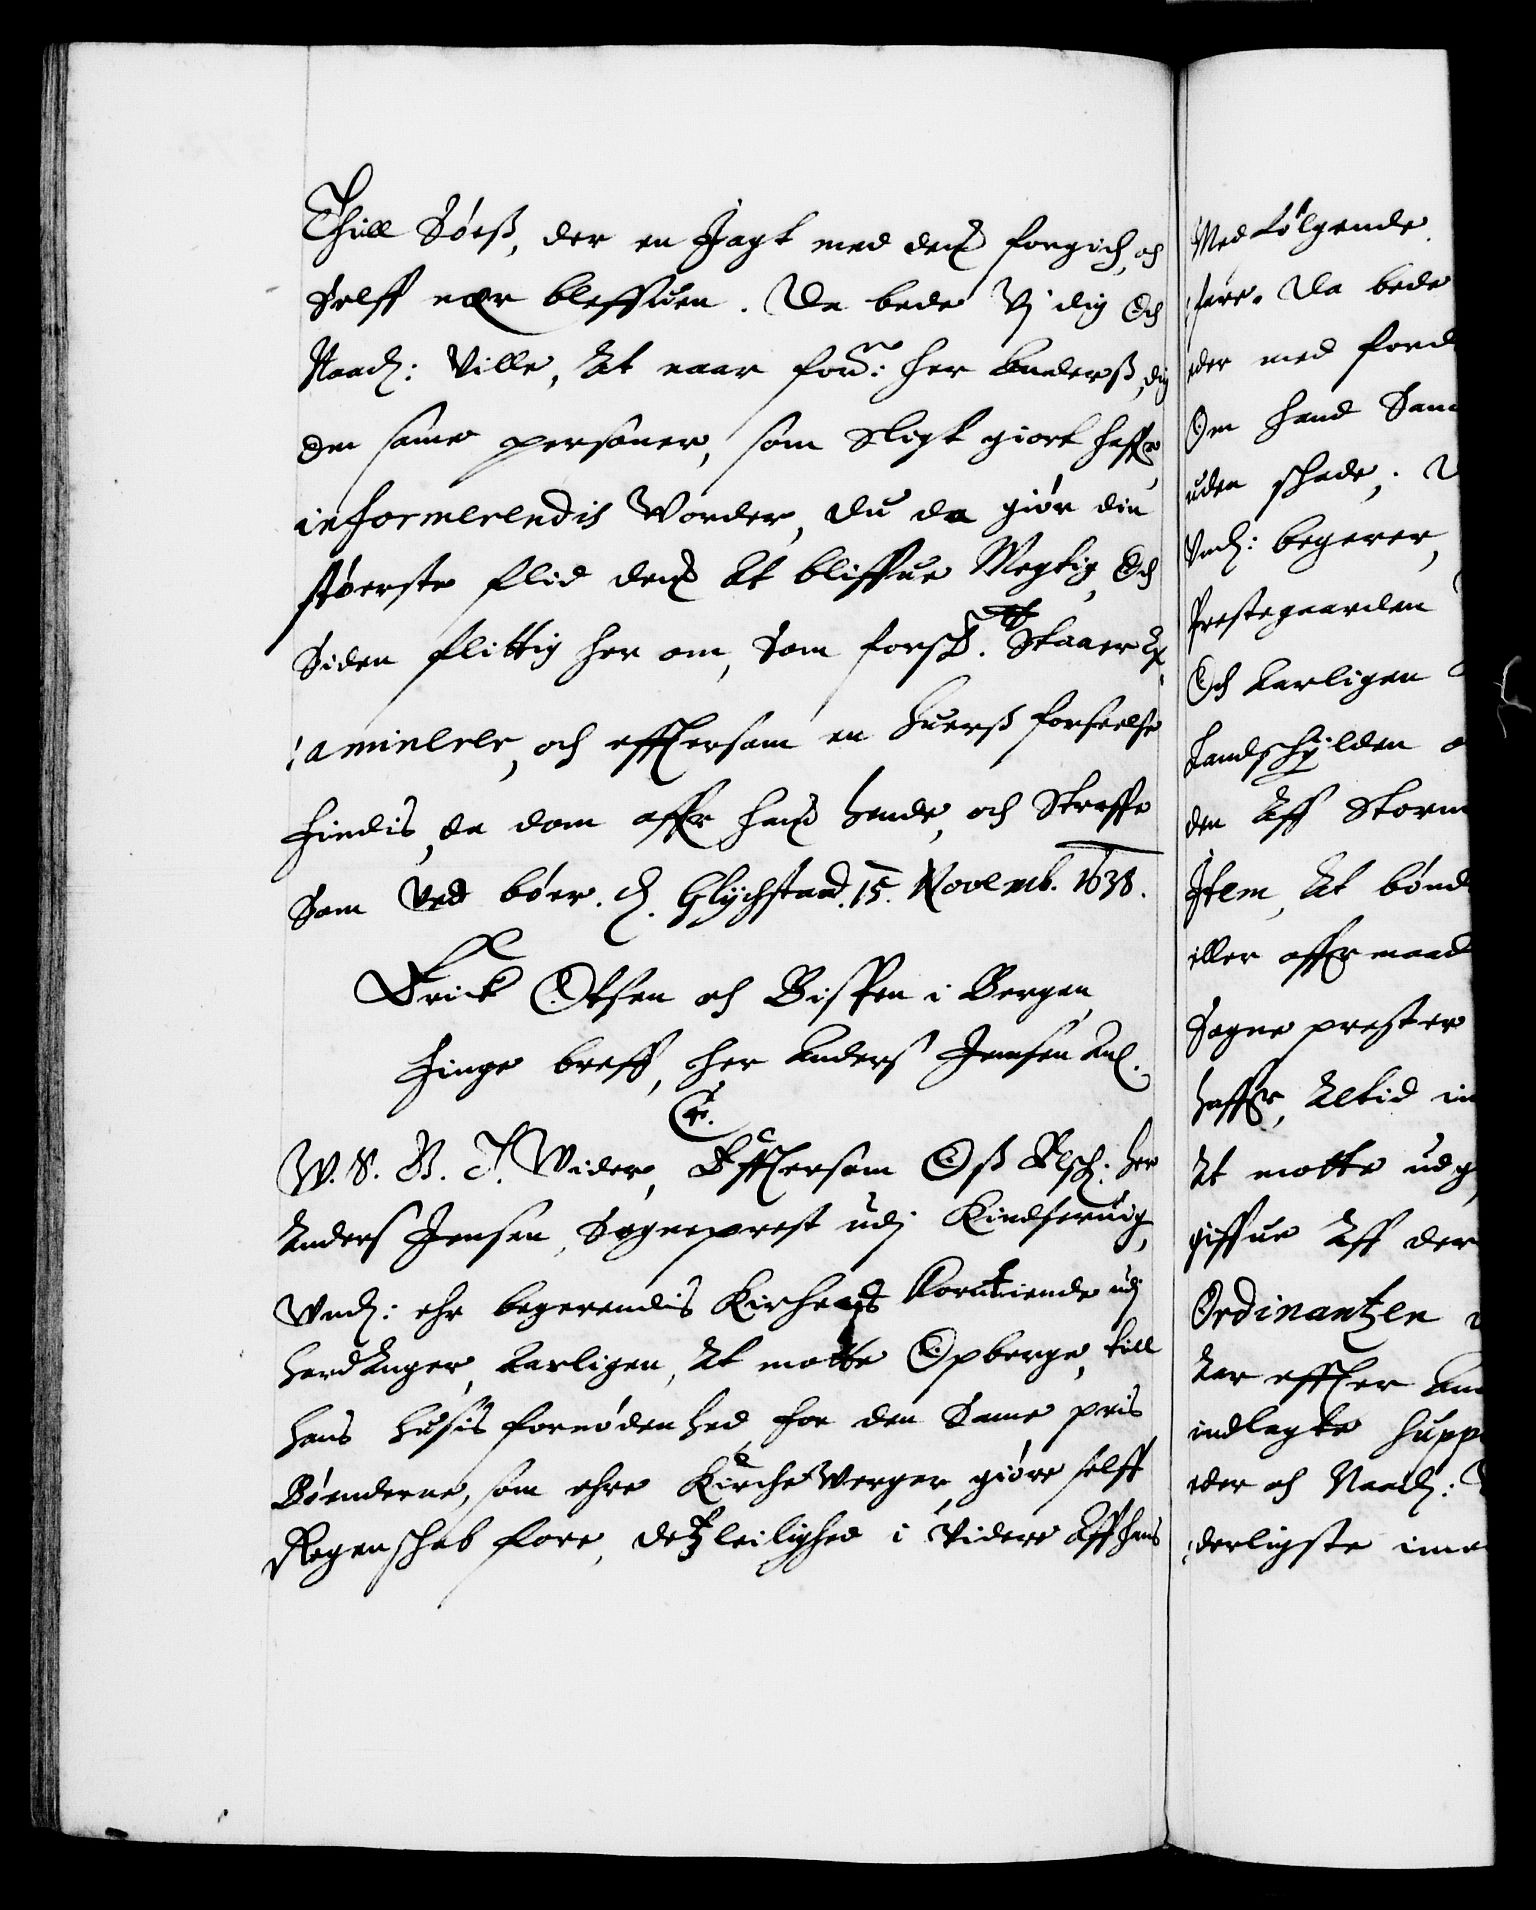 Thill Söeß, der en Jagt med dend forgich, och
Selff nær bleffuen. Da bede Vj dig Och
Naad: Ville, At naar forne: her Anderß, dig
den same personer, som Sligt giort haffr
informerendis Worder, du da giör din
störste flid dend At bliffue Megtig, Och
Siden flittig her om, Som forsch. Skaaer Ex
aminere, och efftersom en huerß forseelse
findis, da dom offr hand hende, och Straffe
Som Ved böer. H. Glychstad. 15. Novemb. 1638.
Erick Otsen och Bispen i Bergen
finge breff, her Anders Jensen Anl.
Cr.
W. S. B. T. Wider, Efftersom Oß Elsch: her
Anders Jensen, Sogneprest udj Kindseruig,
Vnd: ehr begerendis Kirchens Korntiende udj
hardAnger, Aarligen, At motte Opberge, till
hans husis fornödenhed for den Same pris
Bönderne, som ehre KircheWerger, giöre selff
Regenschab fore, detz leilighed i Videre Aff hans
Medfølgende
fare. Da bede
eder med ford
Om hand Sam
uden schade,
Vnd: begerer,
Prestegaarden
Och Aarligen
Landschylden o
den Aff Storm
Item, At bönd
eller offr maad
Sogne prester
haffr, Altid in
At motte udg
giffue Aff der
Ordinantzen
Aar effter An
indlagte Supp
eder och Naad:
derligste ime